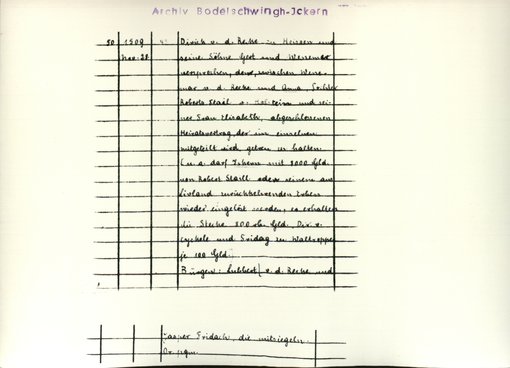 Archiv Bodelschwingh-Ickern
50 1509 Dirich v. d. Recke zu Heesen und
Nov. 28. seine Söhne Gert und Wennemar
versprechen, den zwischen Wenne-
mar v. d. Recke und Anna, Tochter
Roberts Staël v. Holstein und sei-
ner Frau Elisabeth, abgeschlossenen
Heiratsvertrag, der im einzelnen
mitgeteilt wird, getreu zu halten.
(u. a. darf Ickern mit 2000 Gld.
von Robert Staël oder seinem aus
Livland zurückkehrenden Sohn
wieder eingelöst werden, es erhalten
die Stecke 800 rh. Gld. Dir. v.
Eyckele und Fridag zu
je 100 Gld.
Bürgen: Lubbert v. d. Recke und
Jasper Fridach, die mitsiegeln.
Or. pgm.